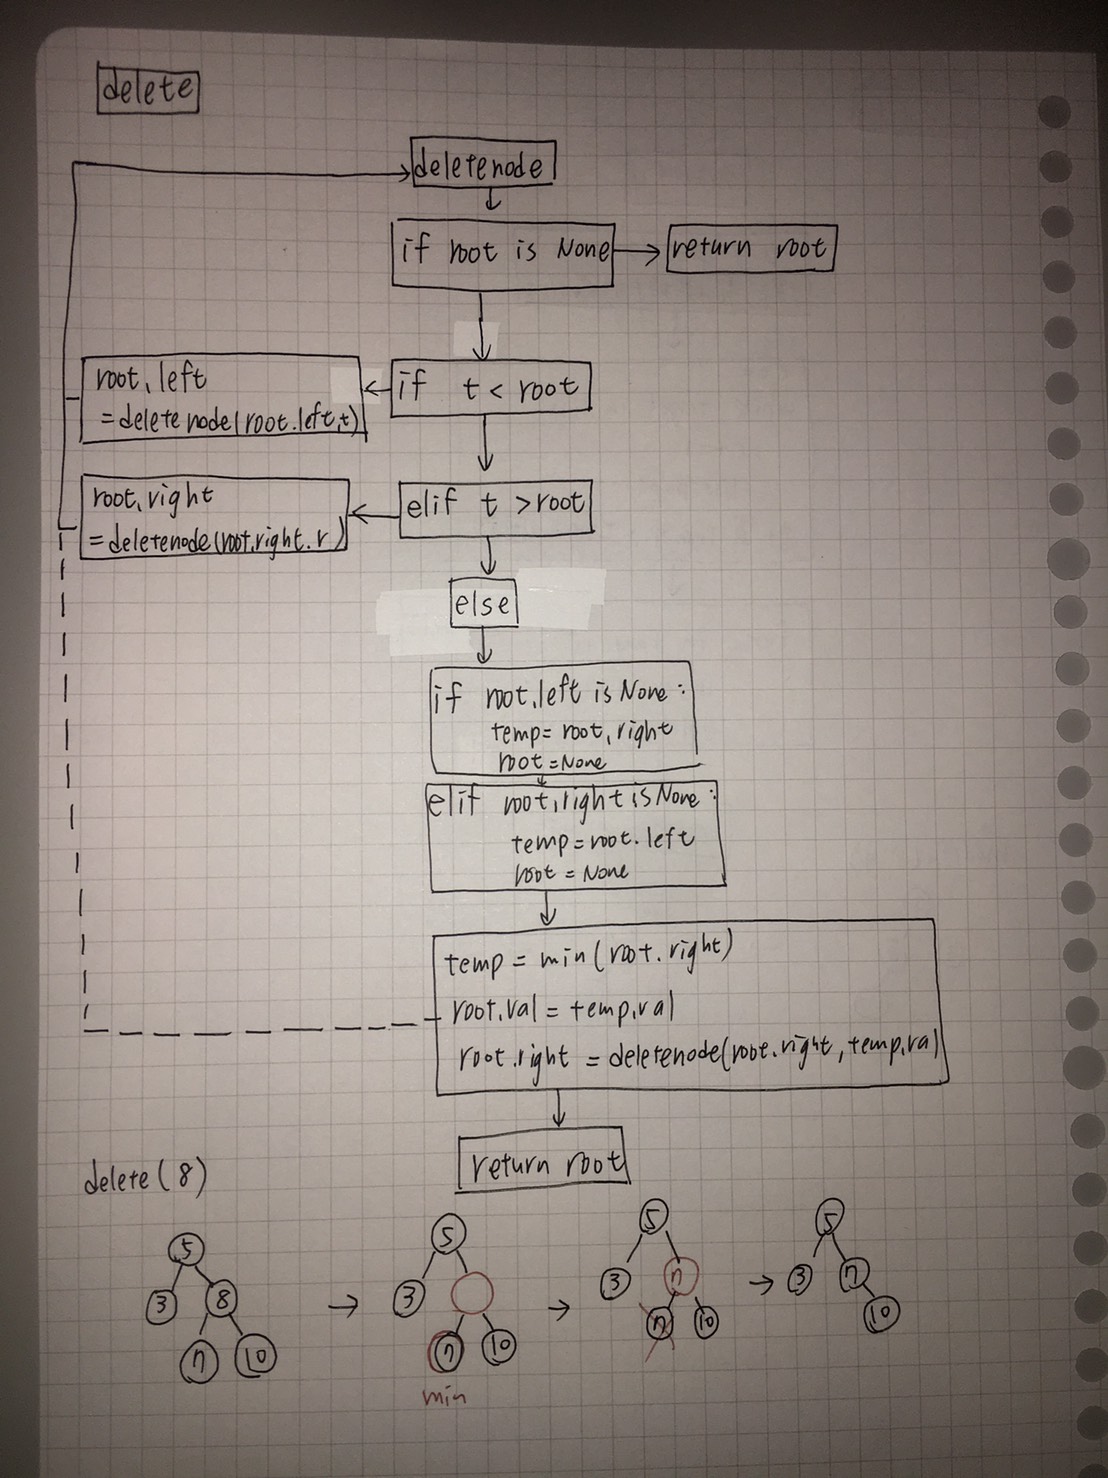 delete
deletenode
if root is None
return root
if t < root
root.left
=deletenode(root.left,t)
elif t >root
root.right
=deletenode(root.right.r)
else
if root.left is None:
temp= root.right
root=None
elif root.right is None:
temp=root.left
root = None
temp = min(root.right)
root.val = temp.val
root.right = deletenode(root.right,temp.va)
return root
delete(8)
5
3 8
7 10
5
3
7 10
min
5
3 7
7 10
5
3 7
10